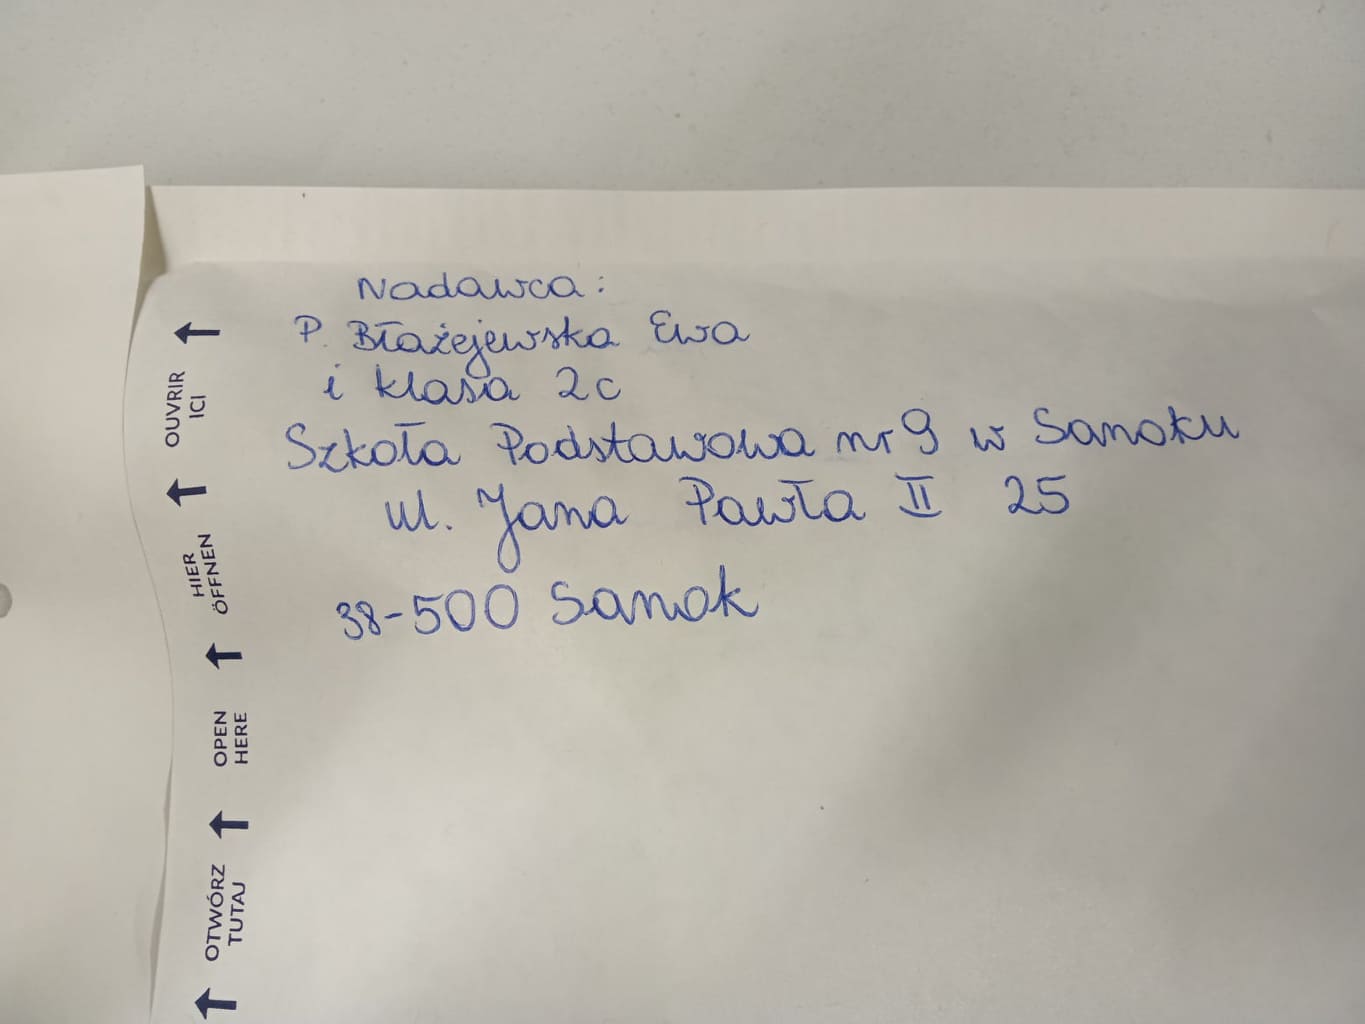 Nadawca:
P. Błażejewska Ewa
i klasa 2c
Szkoła Podstawowa nr 9 w Sanoku
ul. Jana Pawła II 25
38-500 Sanok
OUVRIR
ICI
HIER
ÖFFNEN
OPEN
HERE
OTWÓRZ
TUTAJ